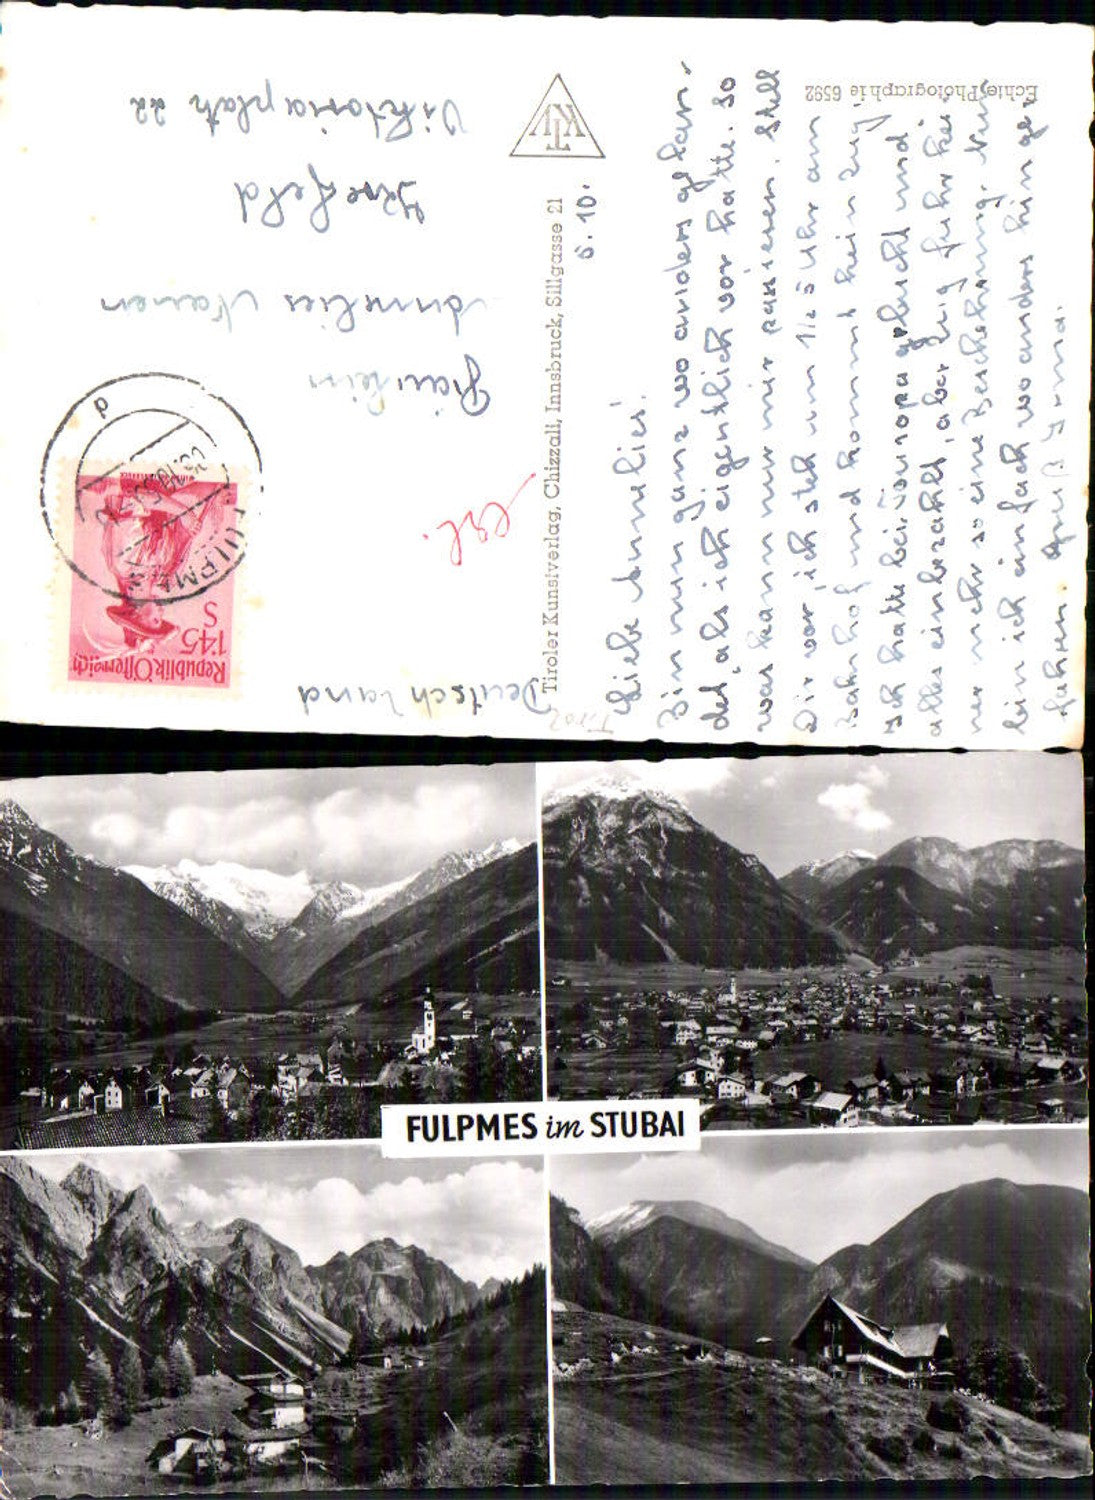 Echte Photographie 6592
KTV
Tiroler Kunstverlag, Chizzali, Innsbruck, Sillgasse 21
6.10.
Liebe Annelies!
Bin nun ganz wo anders gelan-
det, als ich eigentlich vor hatte. So
was kann nur mir passieren. Stell
Dir vor, ich steh um 1/2 5 Uhr am
Bahnhof und kommt kein Zug.
Ich hatte bei Europa gebucht und
alles einbezahlt, aber Zug fuhr kei
ner mehr so eine Bescherung. Nun
bin ich einfach wo anders hin ge
fahren. Gruß Irma.
Fräulein
Annelies
Krefeld
Viktoriaplatz 22
Deutschland
Tirol
Republik Österreich
1·45
S
FULPMES
d
FULPMES im STUBAI